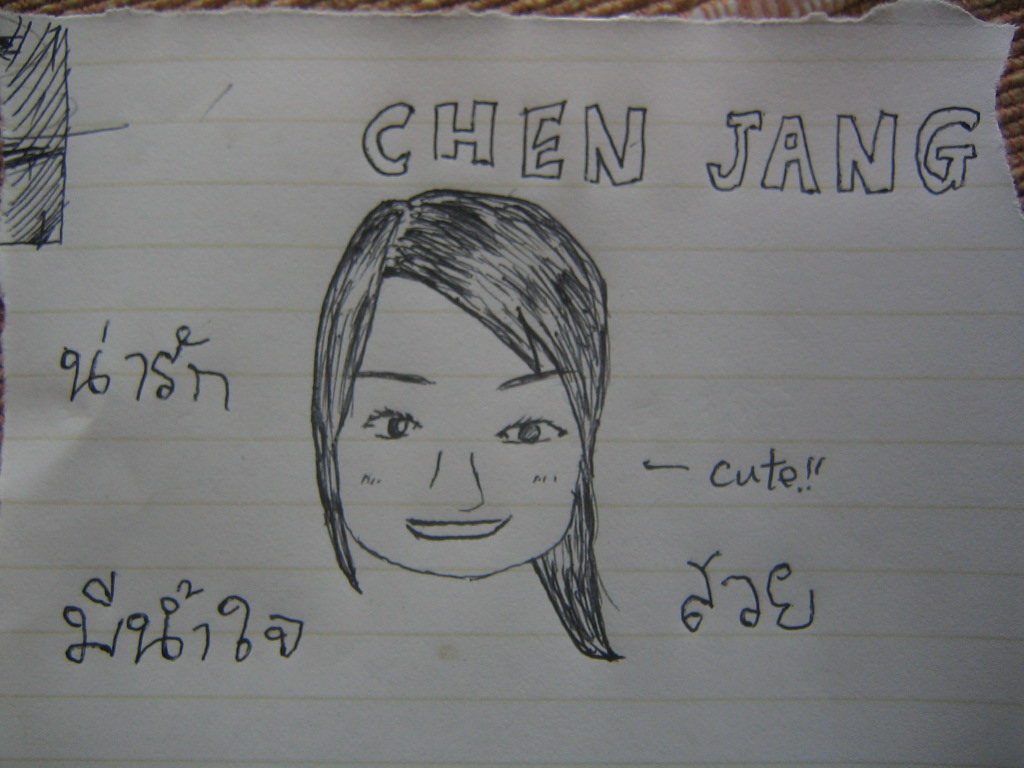 CHEN JANG
น่ารัก
cute!!
สวย
มีน้ำใจ